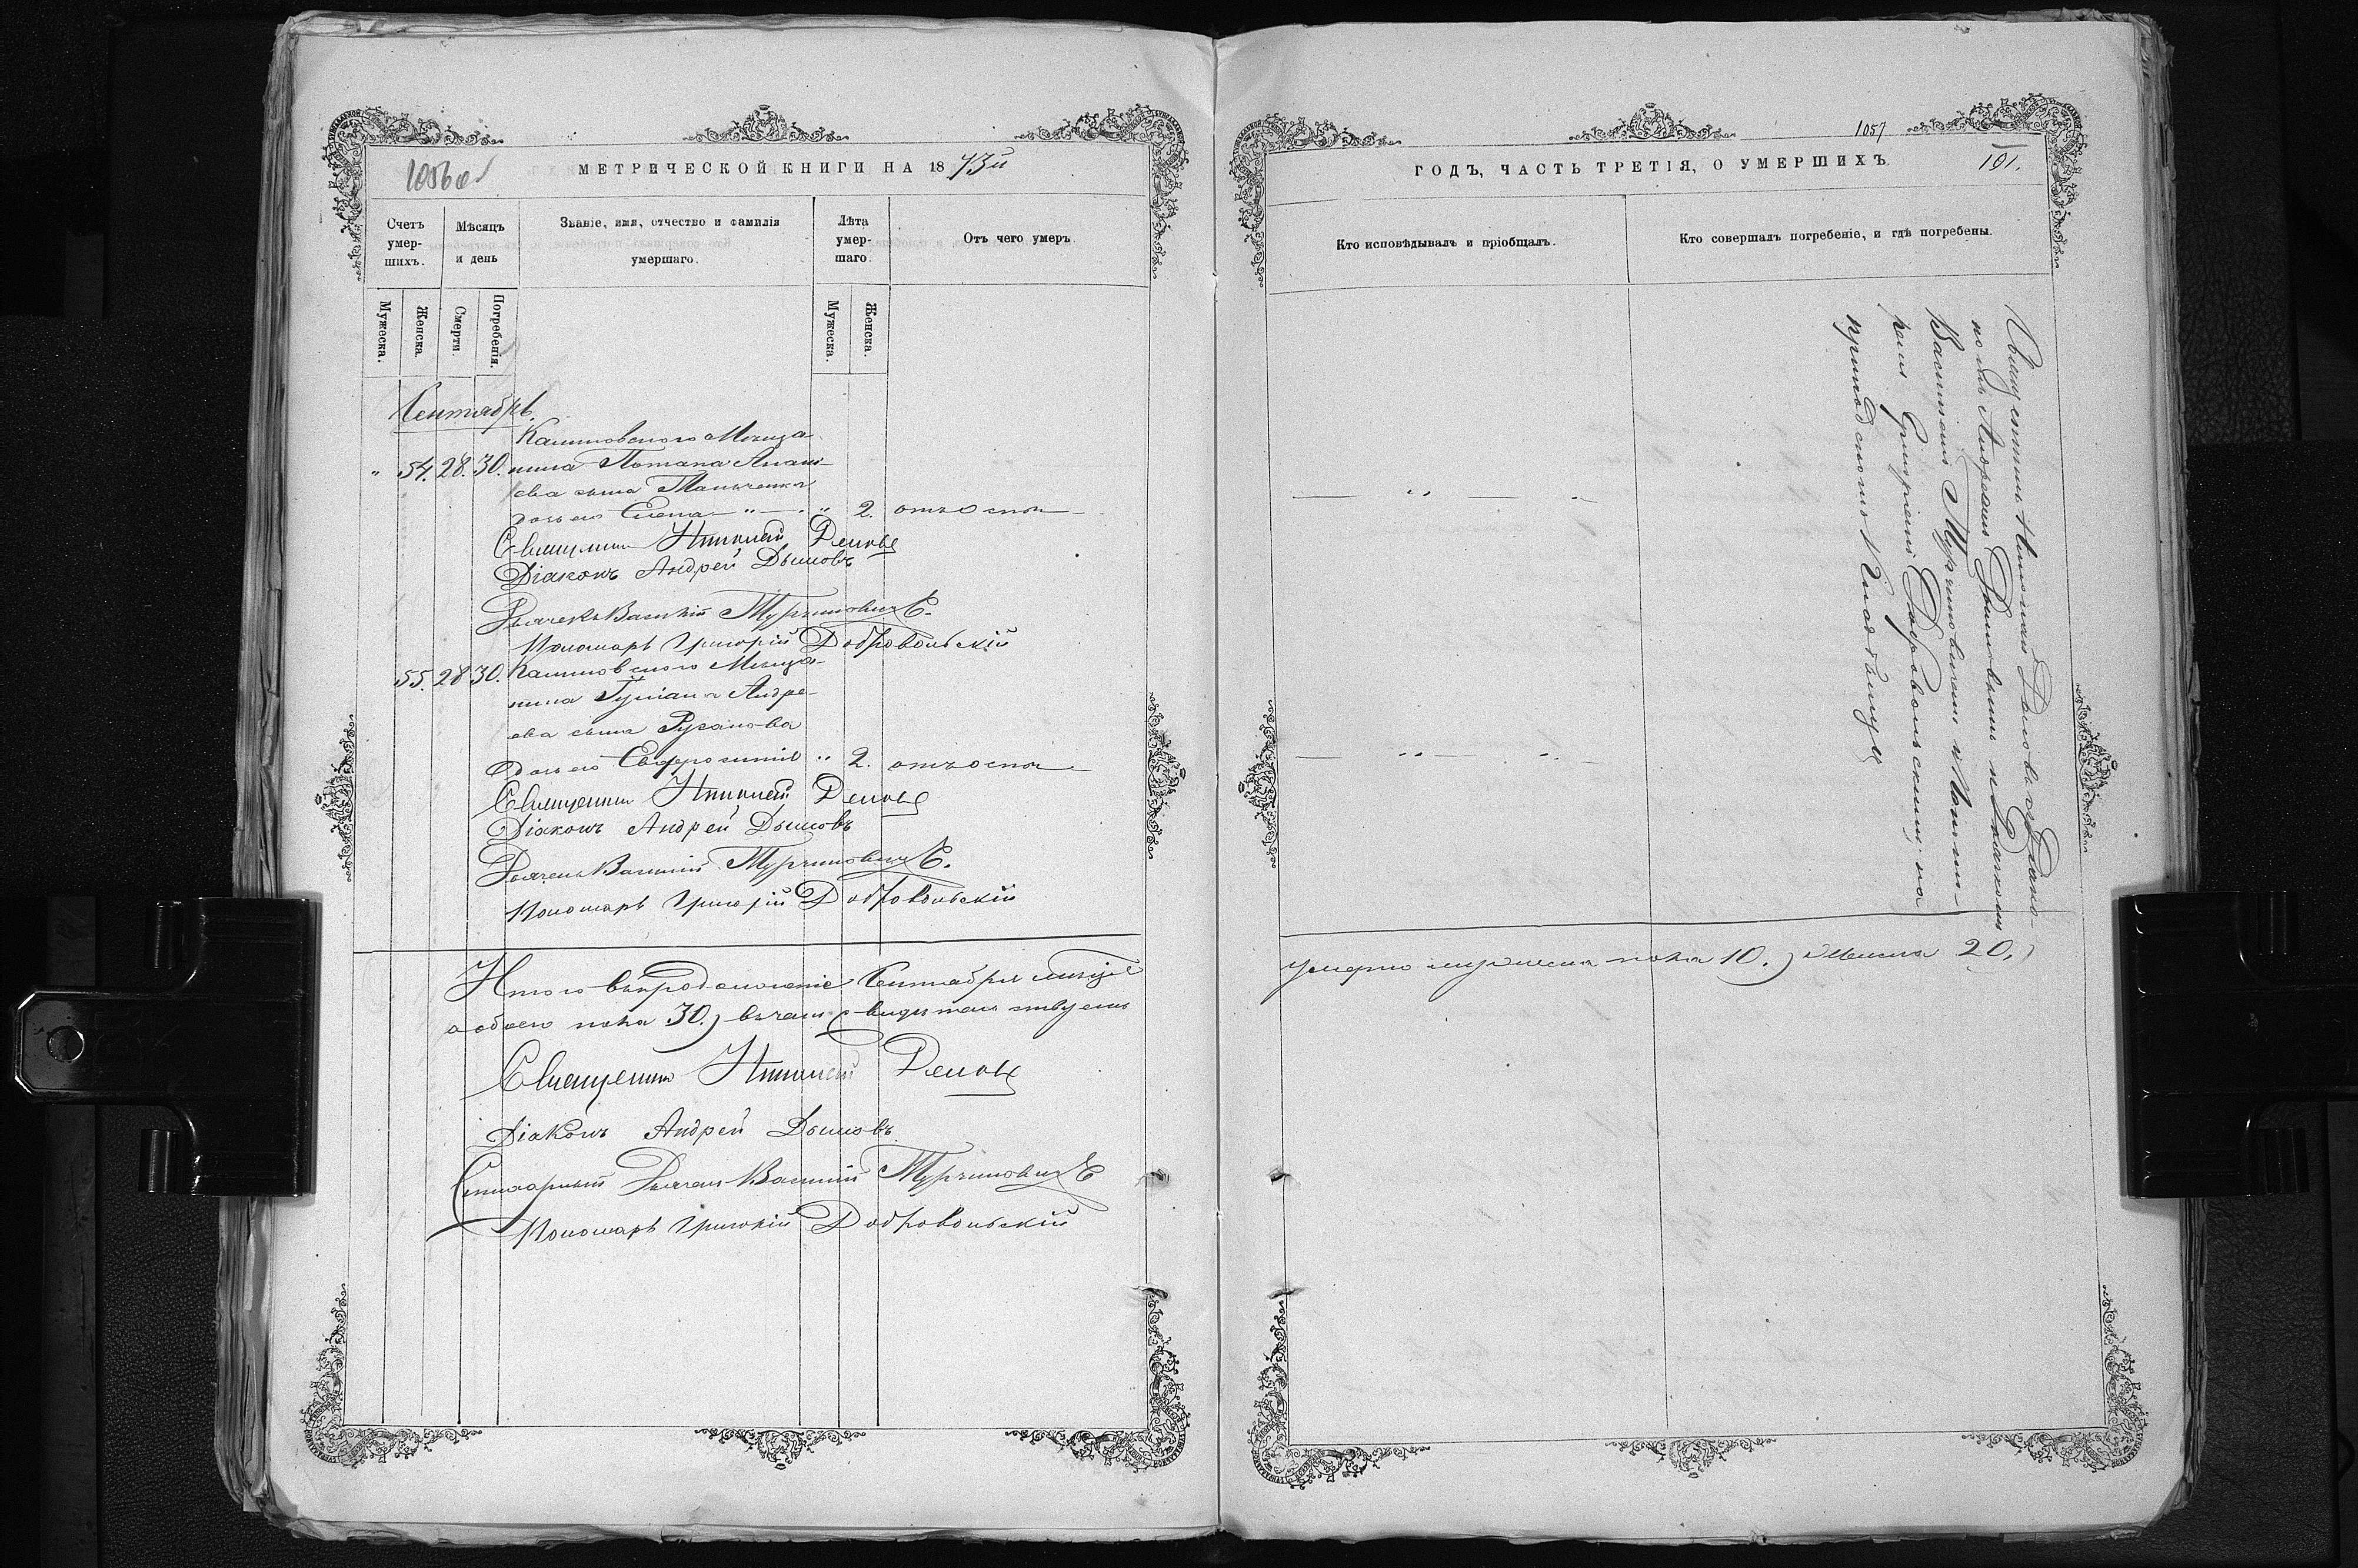 1056 об
МЕТРИЧЕСКОЙ КНИГИ НА 1873й
Счетъ умер-шихъ.
Мѣсяцъ и день
Званіе, имя, отчество и фамилія умершаго.
Лѣта умер-шаго.
Отъ чего умеръ.
Мужеска.
Женска.
Смерти.
Погребенія.
Мужеска.
Женска.
Сентябрь.
Калиновского Мѣща
" 54. 28. 30. нина Потапа Анані-
ева сына
дочь его Елена " 2. отъ оспы
Священникъ Николай
Діаконъ Андрей Дымовъ
Дьячекъ Василій Турчиновичъ.
Пономарь Григорій Добровольскій
55. 28 30. Калиновского Мѣща-
нина Андре-
ева сына Русанова
дочь его Евфросинія " 2. отъ оспы
Священникъ Николай
Діаконъ Андрей Дымовъ
Дьячекъ Василій Турчиновичъ.
Пономарь Григорій Добровольскій
Итого въ продолженіе Сентября мѣсяца
обоего пола 30. въ чемъ свидѣтельствуемъ
Священникъ Николай
Діаконъ Андрей Дымовъ
Стихарный Дьячекъ Василій Турчиновичъ
Пономарь Григорій Добровольскій
1057
ГОДЪ, ЧАСТЬ ТРЕТІЯ, О УМЕРШИХЪ.
101.
Кто исповѣдывалъ и пріобщалъ.
Кто совершалъ погребеніе, и гдѣ погребены.
— " — "
— " — "
Священникъ Николай съ Діако-
номъ Андреемъ Дымовымъ и Дьячкомъ
Василіемъ Турчиновичемъ и Понома-
ремъ Григоріемъ Добровольскимъ, на
приходскомъ кладбищѣ
умерло мужеска пола 10. женска 20.